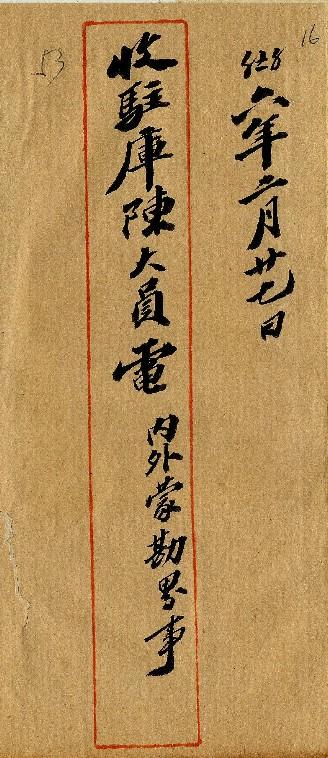 16
六年二月廿七日
收駐庫陳大員電 內外蒙勘界事
53